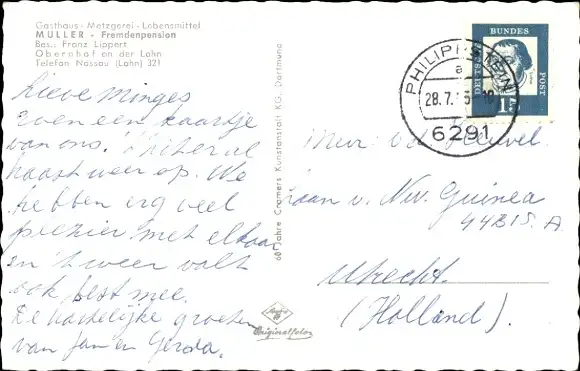 Gasthaus - Metzgerei - Lebensmittel
MÜLLER - Fremdenpension
Bes.: Franz Lippert
Obernhof an der Lahn
Telefon Nassau (Lahn) 321
Lieve Minges
even een kaartje
van ons. 't zit er al
haast weer op. We
hebben erg veel
plezier met elkaar
en 't weer valt
ook best mee.
De hartelijke groeten
van Jan en Gerda.
60 Jahre Cramers Kunstanstalt KG, Dortmund
Originalfoto
DEUTSCHE BUNDES POST
15
PHILIPPSTEIN
a
28.7.
6291
Mevr. v.d. Heuvel
Laan v. Nw. Guinea
44 BIS. A.
Utrecht.
(Holland).